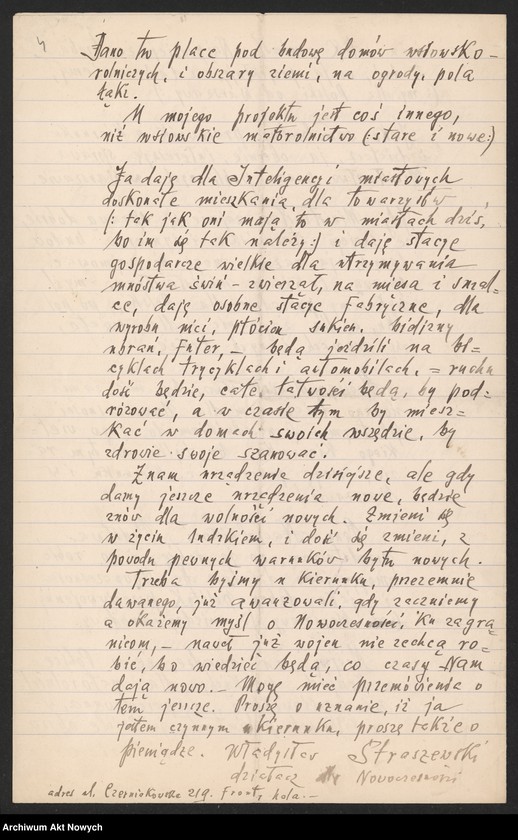 4
Dano tu place pod budowę domów wsiowsko-
rolniczych, i obszary ziemi, na ogrody, pola
łąki.
U mojego projektu jest coś innego,
niż wsiowskie małorolnictwo (:stare i nowe:)
Ja daję dla Inteligencyi miastowych
doskonałe mieszkania, dla towarzystw
(: tak jak oni mają to w miastach dziś,
bo im się tak należy:) i daję stacye
gospodarcze wielkie dla utrzymywania
mnóstwa świń-zwierząt, na mięsa i smal=
ce, daję osobne stacye Fabryczne, dla
wyrobu nici, płócien sukien, bidizny
ubrań, Futer, – będą jeździli na bi=
cyklach trycyklach i automobilach, = ruchu
dość będzie, całe łatwości będą, by pod=
różować, a w czasie tym by miesz=
kać w domach swoich wszędzie, by
zdrowie swoje szanować.
Znam urządzenie dzisiejsze, ale gdy
damy jeszcze urządzenia nowe, będzie
znów dla wolności nowych. Zmieni się
w życiu ludzkiem, i dość się zmieni, z
powodu pewnych warunków bytu nowych.
Trzeba byśmy w kierunku, przezemnie
dawanego, już awanzowali, gdy zaczniemy
a okażemy myśl o Nowoczesności, ku zagra
nicom, – nawet już wojen nie zechcą ro-
bić, bo wiedzieć będą, co czasy Nam
dają nowo. – Mogę mieć przemówienia o
tem jeszcze. Proszę o uznanie, iż ja
jestem czynnym w kierunku, proszę także o
pieniądze. Władysław Straszewski
działacz Nowoczesności
adres ul. Czerniakowska 219. Front,
Archiwum Akt Nowych